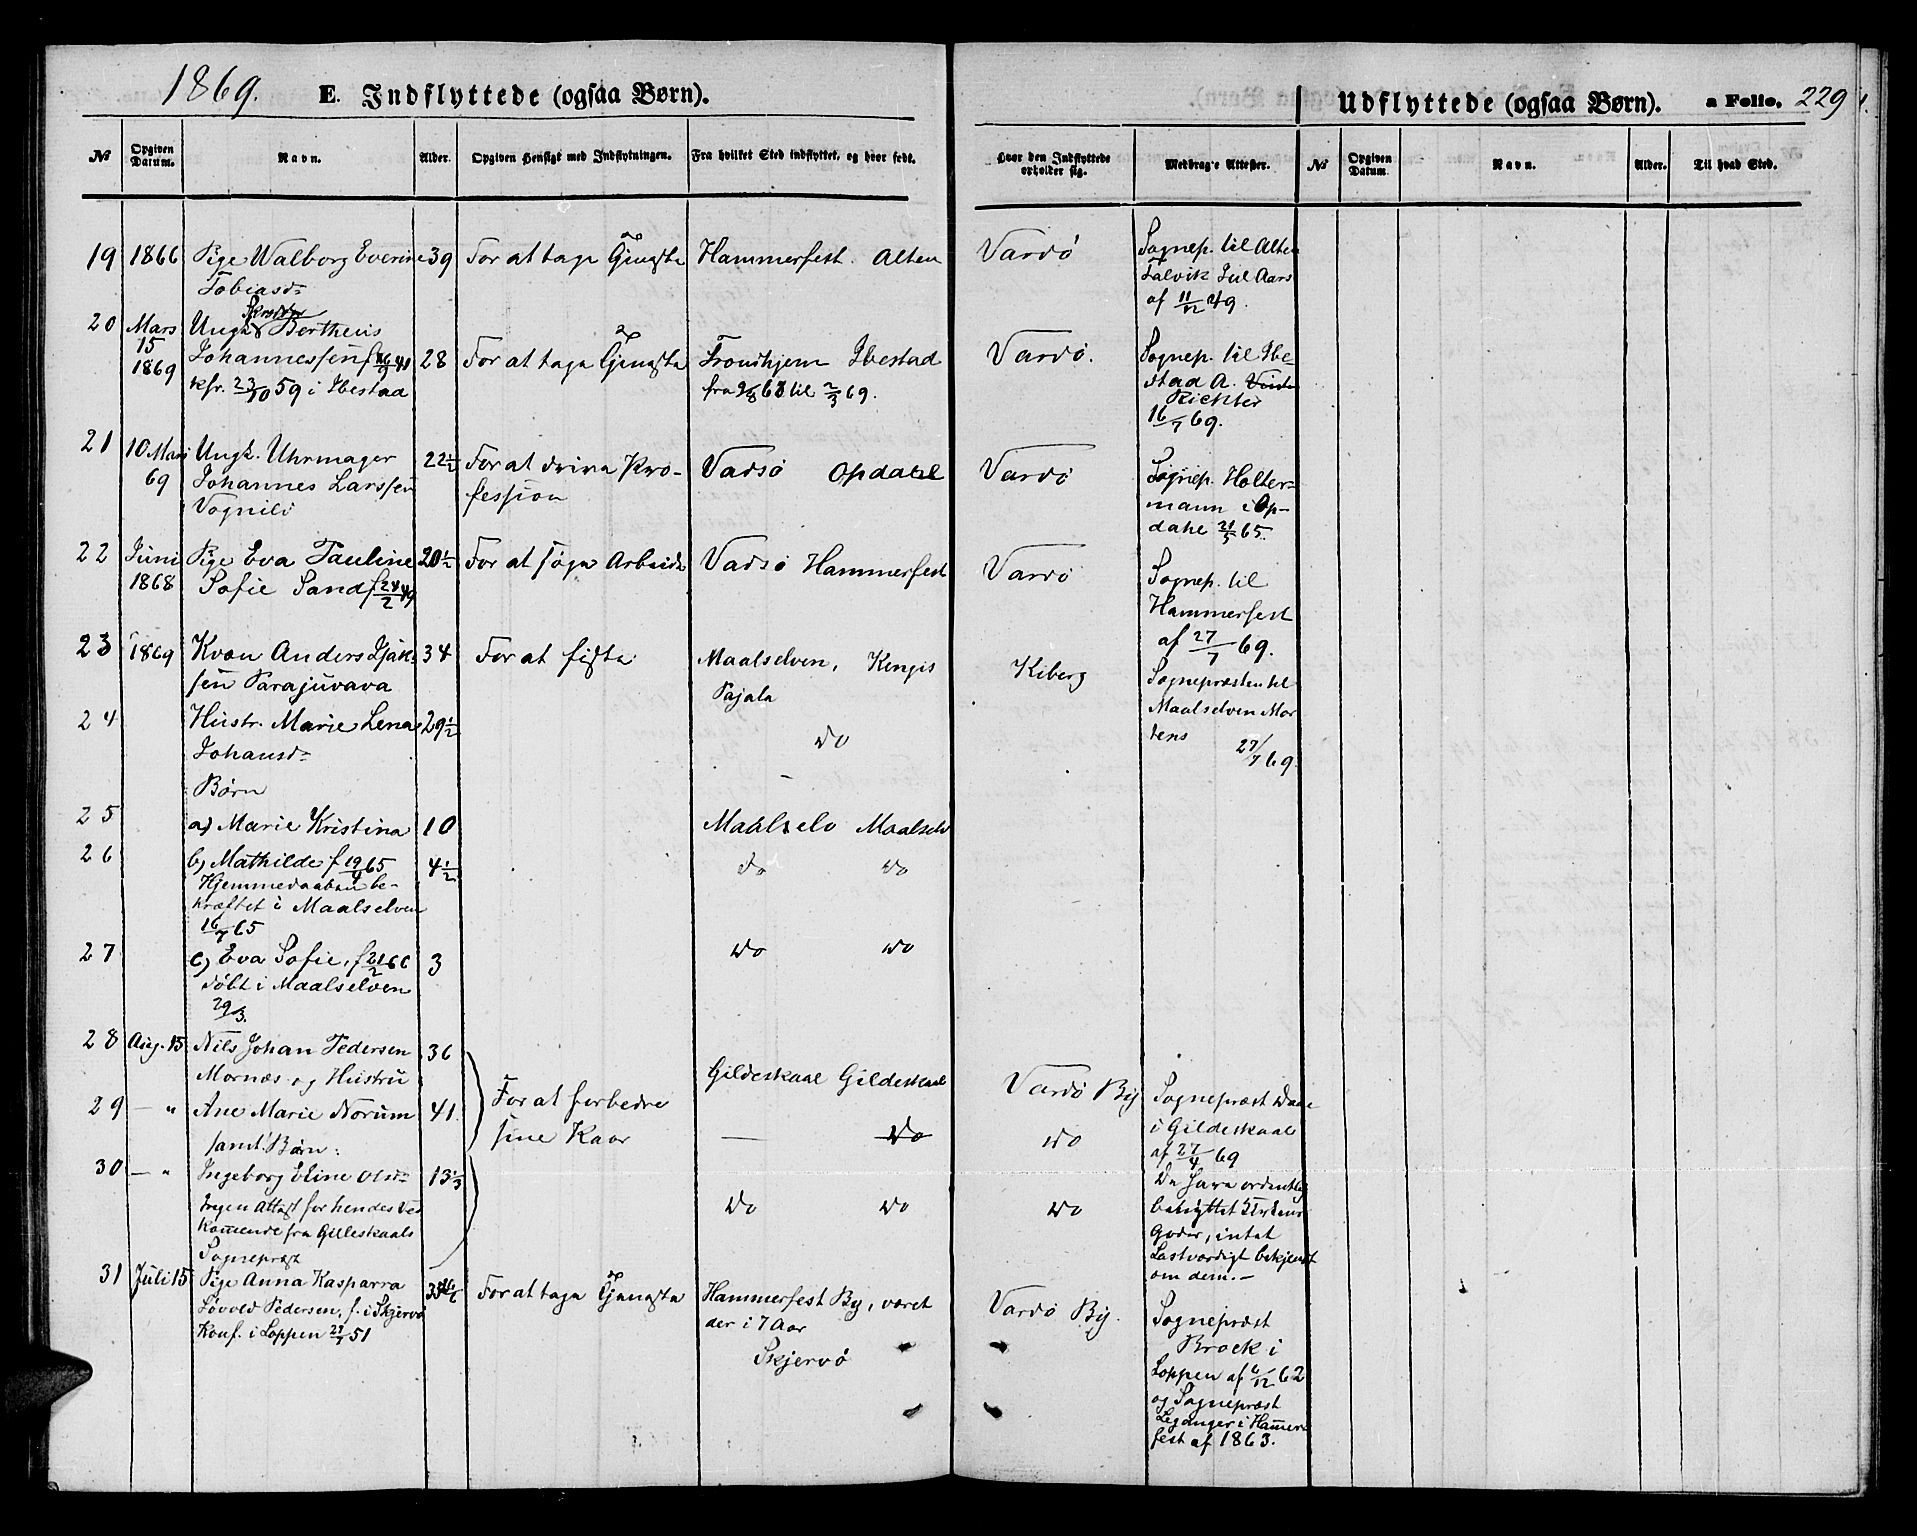 1869. E. Indflyttede (ogsaa Børn).
Udflyttede (ogsaa Børn). a Folio. 229
No Opgiven Datum. Navn. Alder. Opgiven Hensigt med Indflytningen. Fra hvilket Sted indflyttet, og hvor født.
Hvor den Indflyttede opholder sig. Medbragte Attester. No Opgiven Datum Navn. Alder. Til hvad Sted.
19 1866 Pige Walborg Everine 39 For at tage Tjeneste Hammerfest. Alten Vardö Sognep. til Alten
Tobiasd. Talvik Jul Aars
af 11/12 49.
20 Mars Ungk. Skrædder Bertheus
15 Johannessen f 16/9 41 28 For at tage Tjeneste Trondhjem Ibestad Vardö. Sognep. til Ibe
1869 kfr. 23/10 59 i Ibestad fra 9/8 68 til 2/3 69. stad A.
Richter
16/7 69.
21 10 Mars Ungk. Uhrmager 22½ For at drive Pro- Vadsö Opdahl Vardö Sognep. Holter-
69 Johannes Larssen fession mann i Op-
Vognild dahl 21/5 65.
22 Juni Pige Eva Pauline 20½ For at söge Arbeide Vadsö Hammerfest Vardö Sognep. til
1868 Sofie Sand f 24/2 49 Hammerfest
af 27/7 69.
23 1869 Kvæn Anders Isak- 34 For at fiske Maalselven, Kengis Kiberg Sognepræsten til
sen Parajuvava Pajala Maalselven Mor
24 Hustr. Marie Lena 29½ do tens 27/7 69.
Johansd.
Børn
25 a) Marie Kristina 10 Maalselv Maalselv
26 b) Mathilde f 19/4 65 4½ do do
Hjemmedaaben be-
kræftet i Maalselven
16/7 65
27 c) Eva Sofie, f 21/2 66 3 do do
döbt i Maalselven
29/3.
28 Aug. 15 Nils Johan Pedersen 36 Gildeskaal Gildeskaal Vardö By Sognepræst Daae
Mornæs og Hustru For at forbedre
29 — " Ane Marie Norum 41. sine Kaar — do do i Gildeskaal
samt Børn: af 27/4 69
30 — " Ingeborg Eline Olsd. 13⅓ do do do De have ordentlig
Ingen Attest for hendes Ved benyttet Kirkens
kommende fra Gilleskaals Goder, intet
Sognepræst Lastværdigt bekjendt
om dem.—
31 Juli 15 Pige Anna Kasparra For at tage Tjeneste Hammerfest By, været Vardö By. Sognepræst
Lövold Pedersen, f. i Skjervö der i 7 Aar Brock i
Konf. i Loppen 27/7 51 Skjervö Loppen af 6/12 62
og Sognepræst
Leganger i Hamer
fest af 1863.